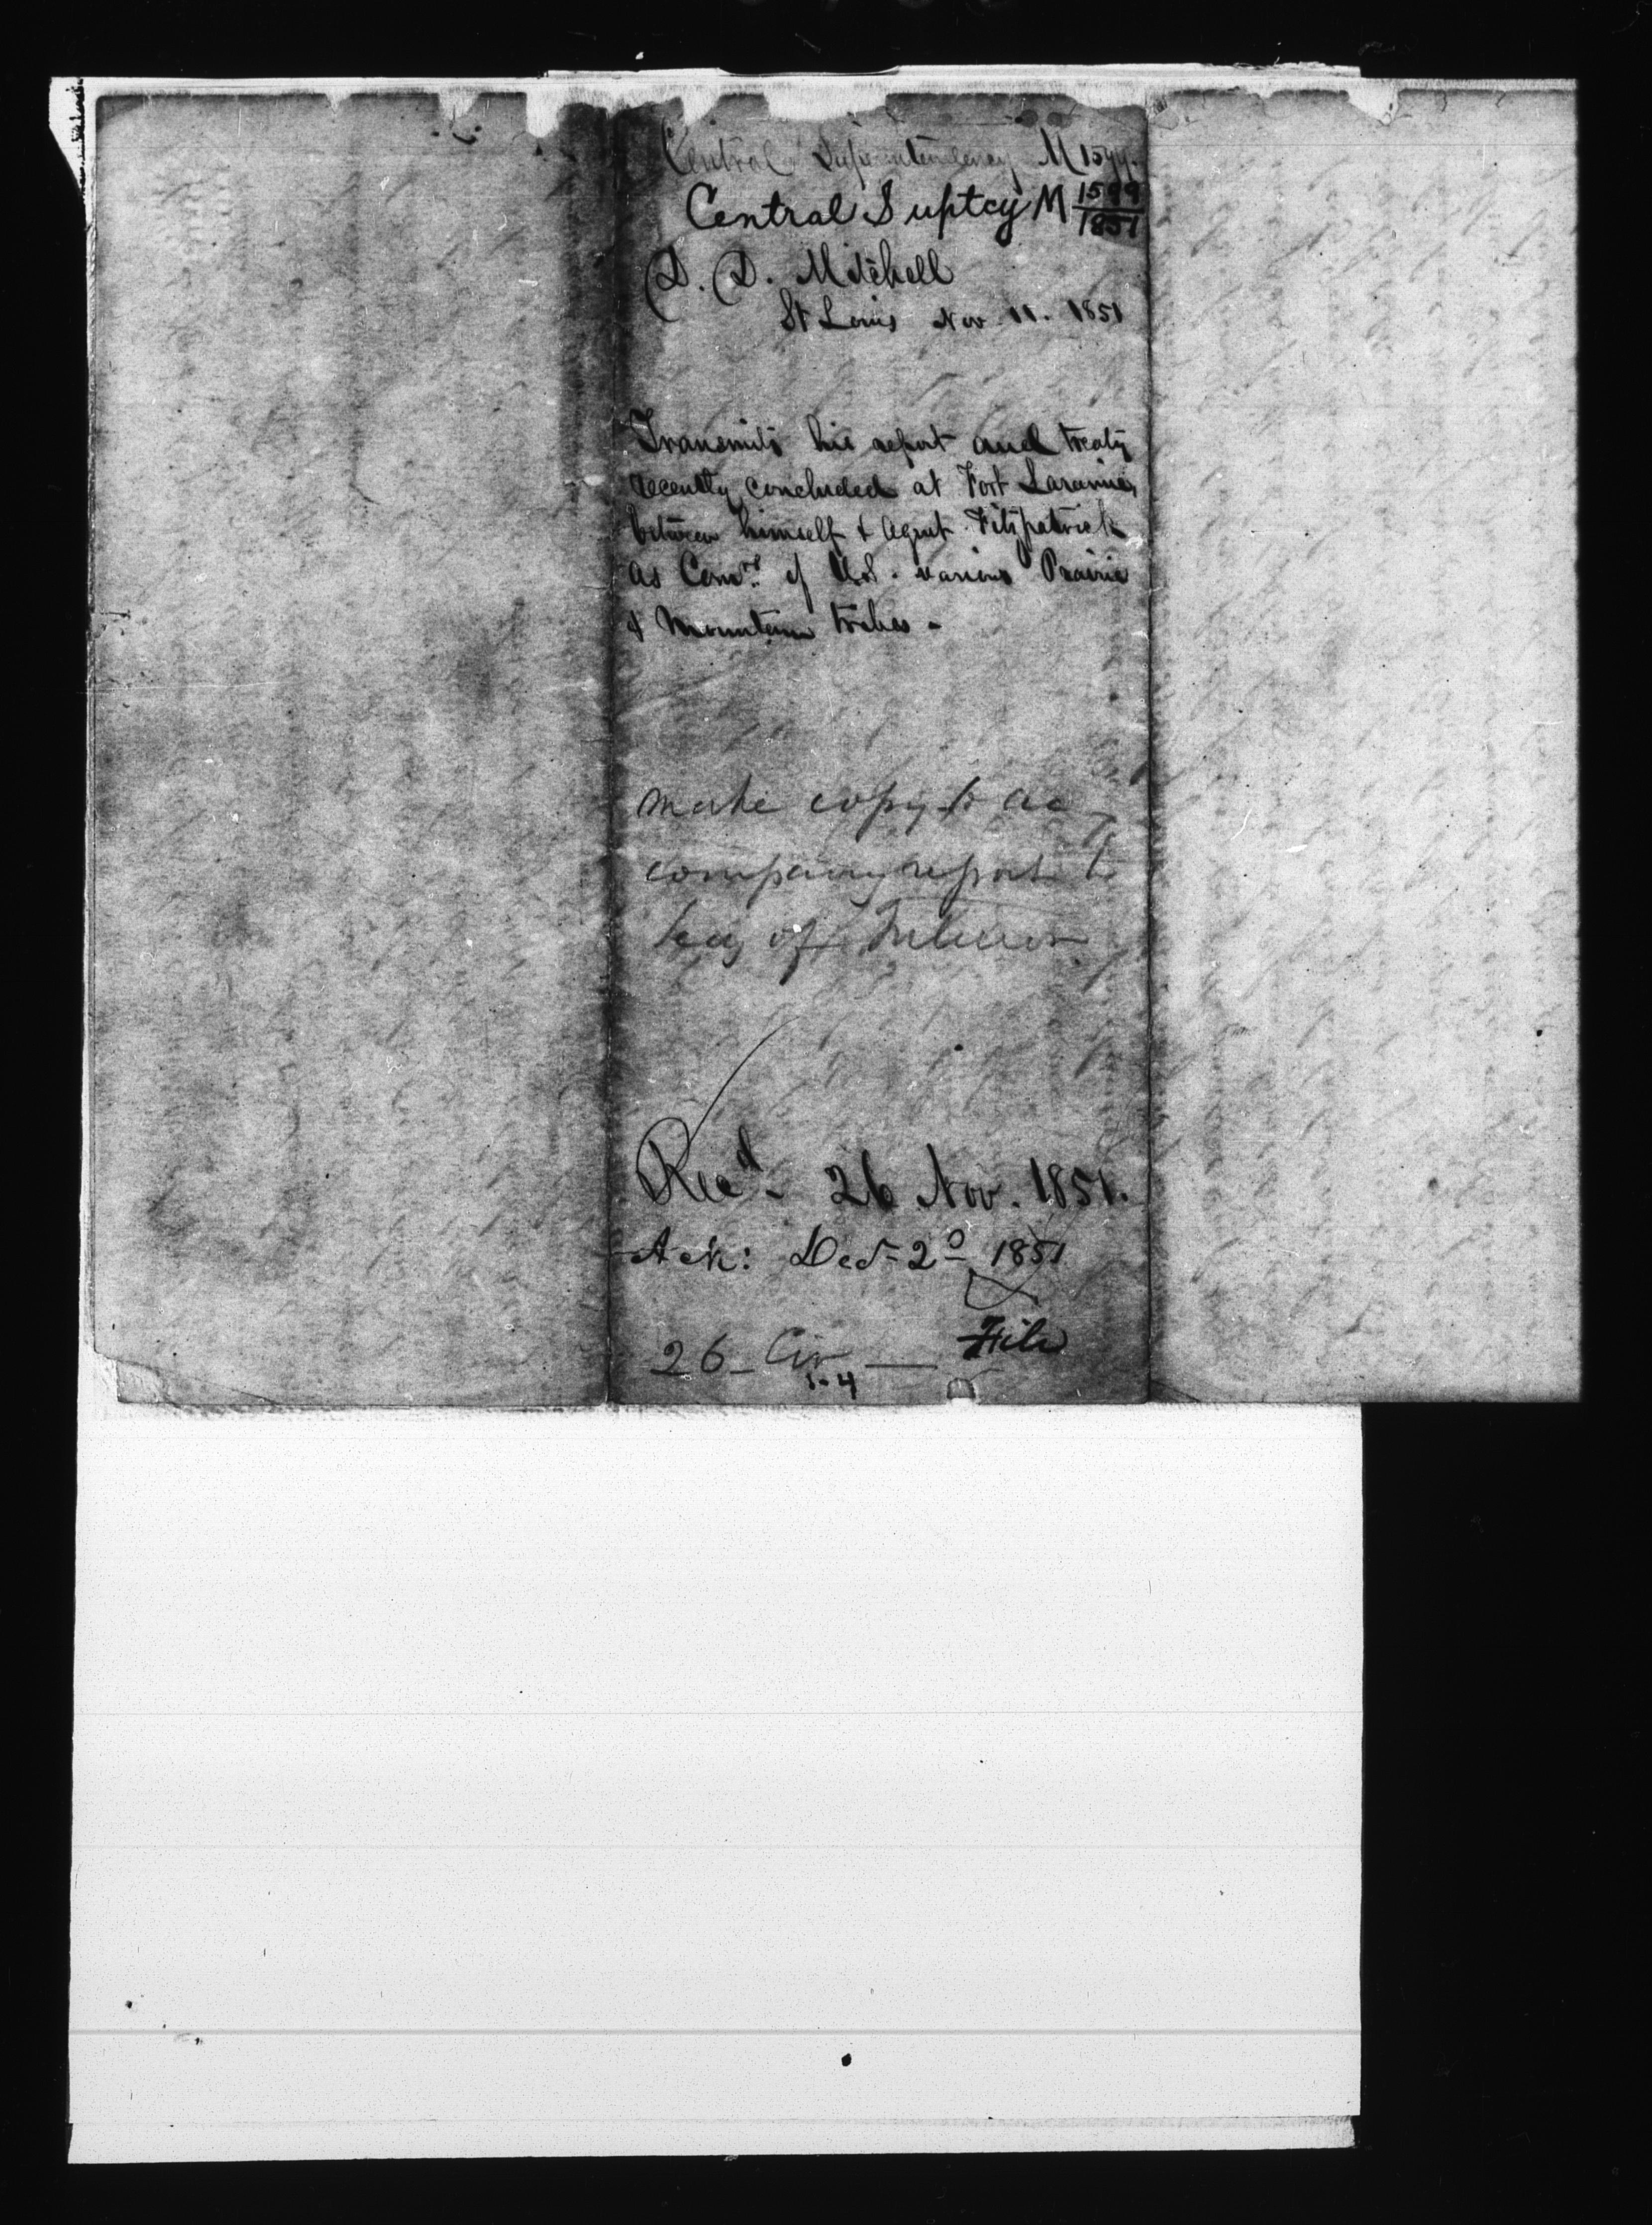 Central Superintendency M 1599.
Central Suptcy M 1599/1851
D. D. Mitchell
St Louis Nov. 11. 1851
Transmits his report and treaty
recently concluded at Fort Laramie,
between himself & Agent Fitzpatrick
as Comrs. of U.S. various Prairie
& Mountain tribes -
make copy to ac
company report to
Secy of Interior
Recd. 26 Nov. 1851.
Ack: Dec 2d 1851
File
26